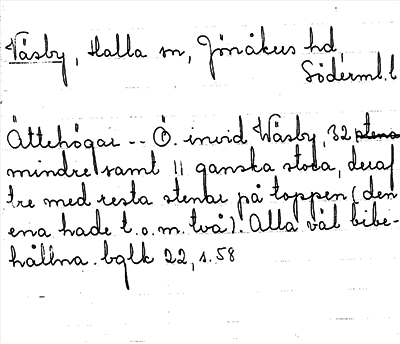 Väsby, Halla sn, Jönåkers hd,
Söderml. l
Ättehögar -- Ö. invid Wäsby, 32 stena
mindre samt 11 ganska stora, deraf
tre med resta stenar på toppen (den
ena hade t.o.m. två). Alla väl bibe-
hållna. bglk 22, s. 58